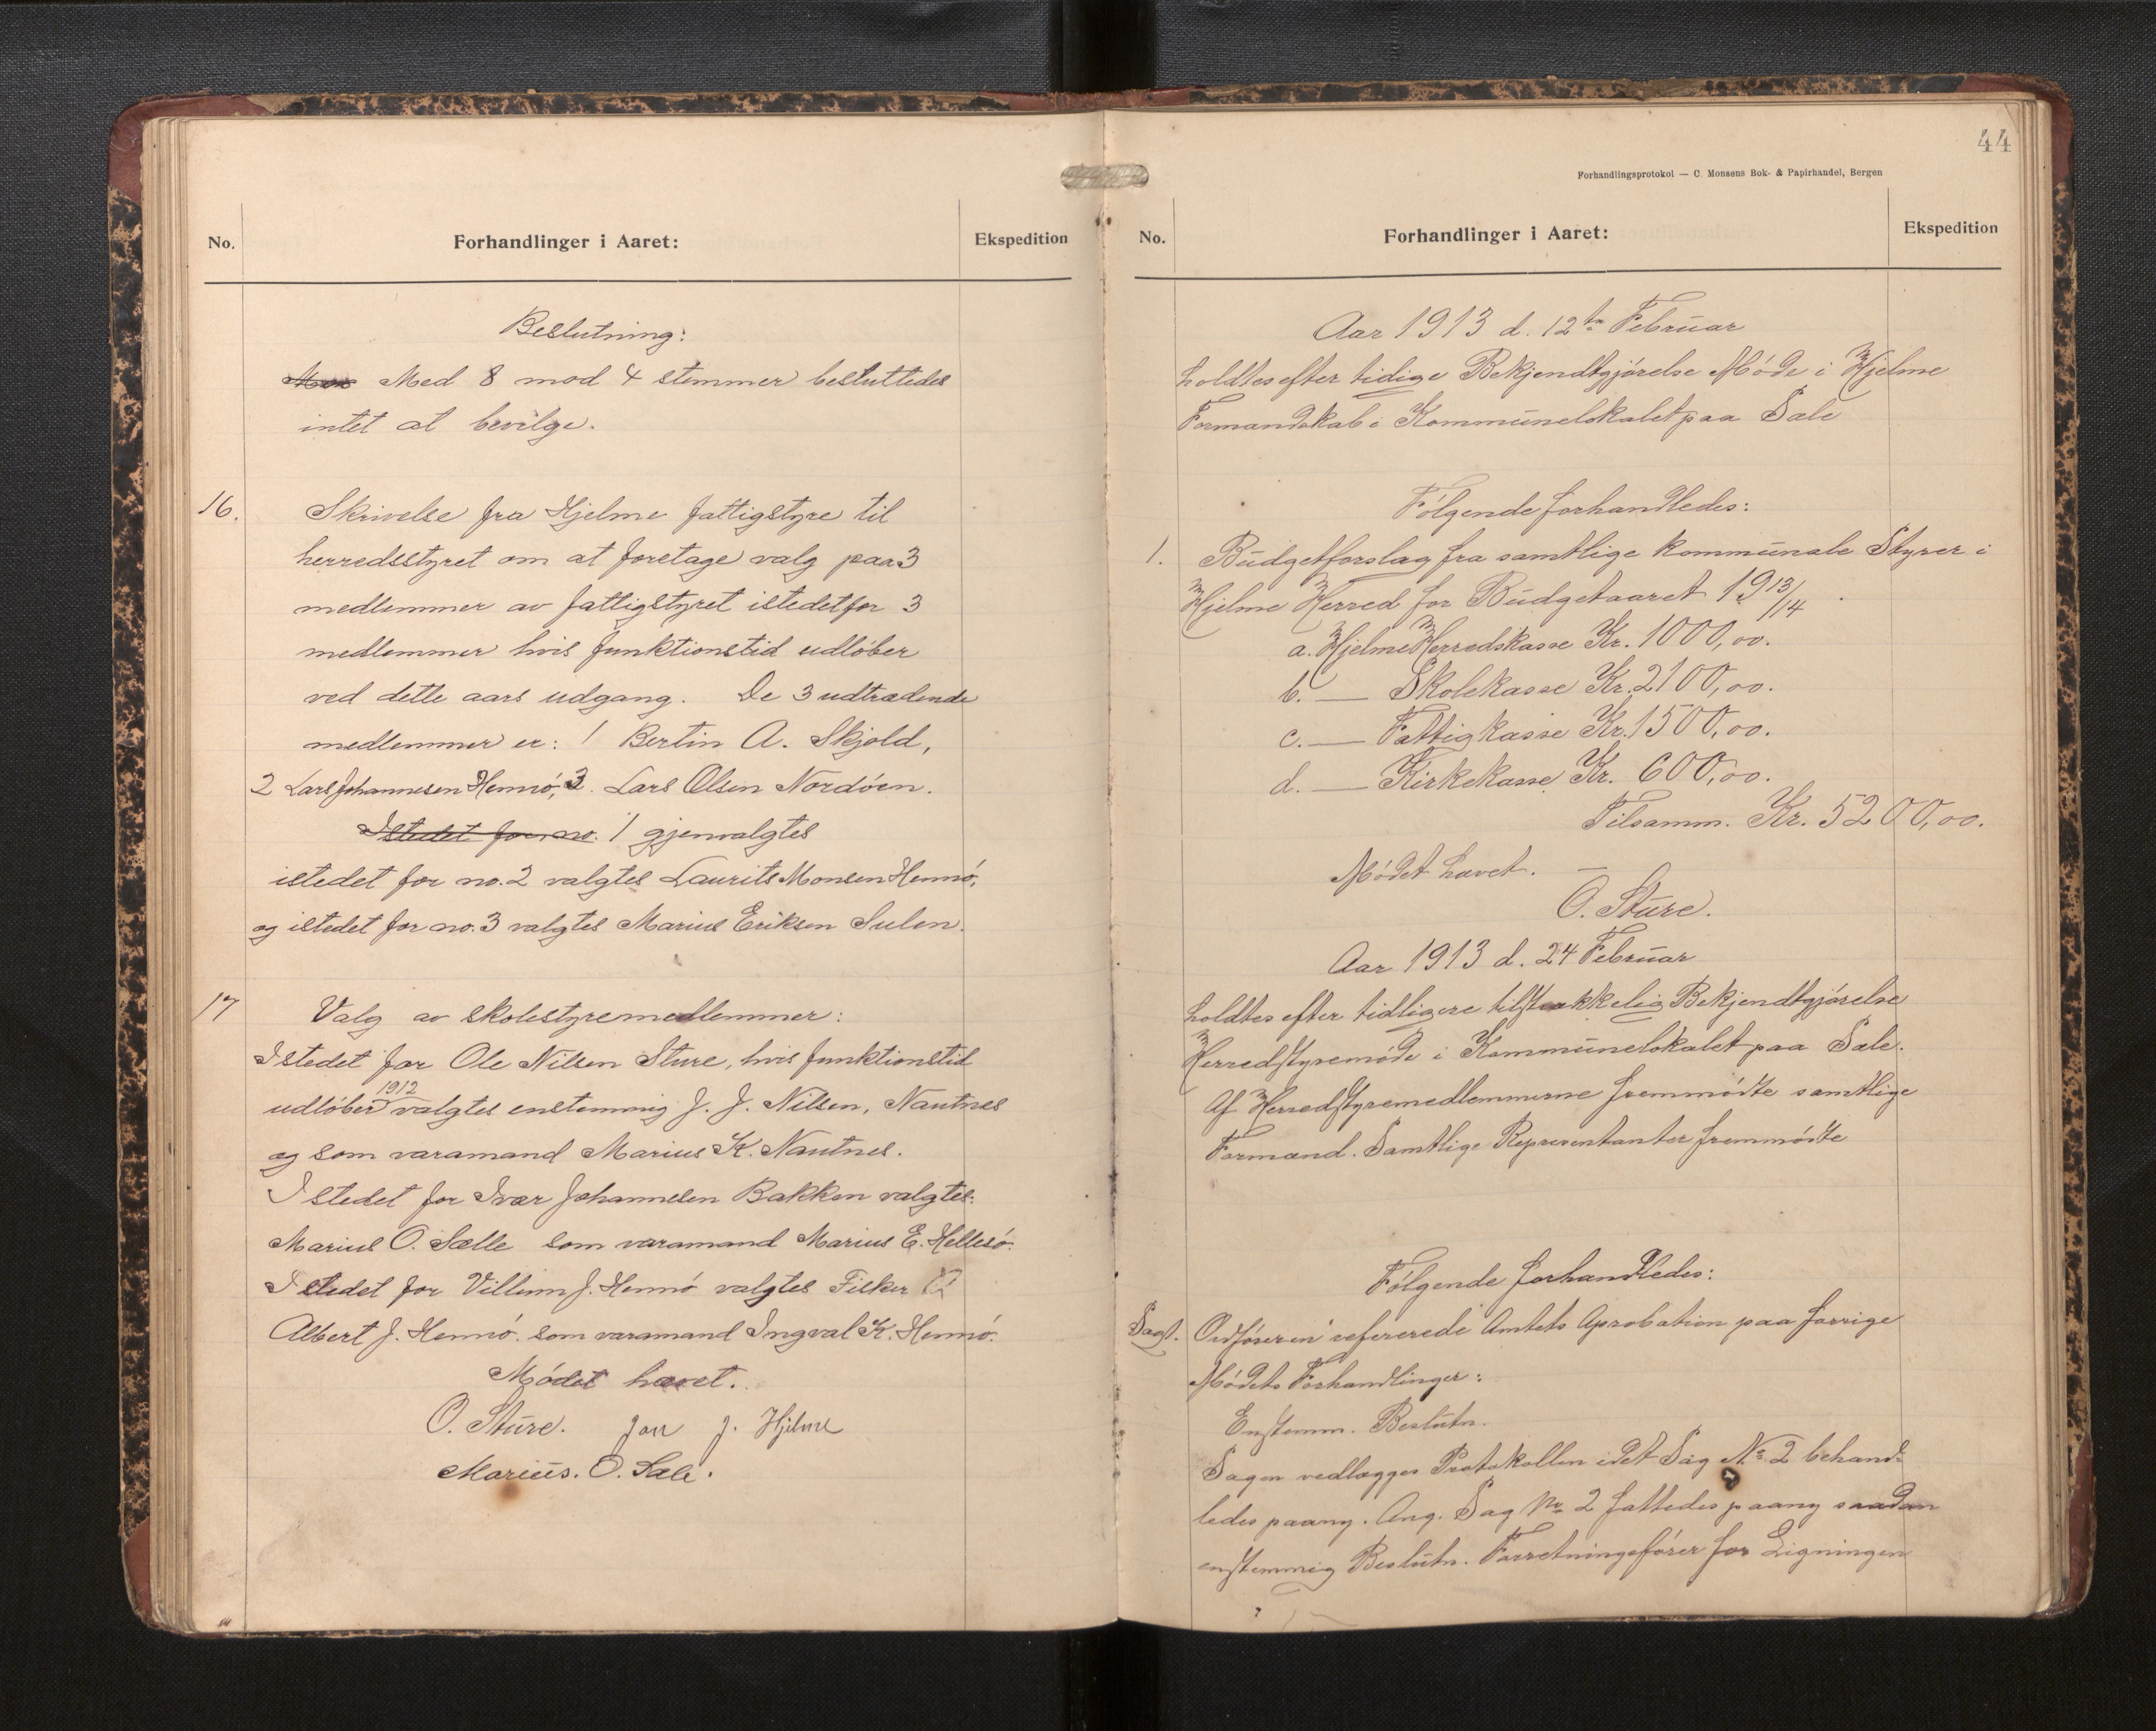 No.
Forhandlinger i Aaret:
Ekspedition
Beslutning:
Med 8 mod 4 stemmer besluttedes
intet at bevilge.
16. Skrivelse fra Hjelme fattigstyre til
herredsstyret om at foretage valg paa 3
medlemmer av fattigstyret istedetfor 3
medlemmer hvis funktionstid udløber
ved dette aars udgang. De 3 udtrædende
medlemmer er: 1 Bertin A. Skjold,
2 Lars Johannesen Hernø, 3. Lars Olsen Nordøen.
Istedet for no. 1 gjenvalgtes
istedet for no. 2 valgtes Laurits Monsen Hernø,
og istedet for no. 3 valgtes Marius Eriksen Sulen.
17 Valg av skolestyremedlemmer:
Istedet for Ole Nilsen Sture, hvis funktionstid
udløber 1912 valgtes enstemmig J. J. Nilsen, Nautnes
og som varamand Marius K. Nautnes.
Istedet for Ivar Johannesen Bakken valgtes:
Marius O. Sælle som varamand Marius E. Hellesø.
Istedet for Villum J. Hernø valgtes Fisker
Albert J. Hernø. som varamand Ingval K. Hernø.
Mødet hævet.
O. Sture. Jon J. Hjelme
Marius. O. Sæle.
44
Forhandlingsprotokol — C. Monsens Bok- & Papirhandel, Bergen
No.
Forhandlinger i Aaret:
Ekspedition
Aar 1913 d. 12te Februar
holdtes efter tidige Bekjendtgjørelse Møde i Hjelme
Formandskab i Kommunelokalet paa Sæle
Følgende forhandledes:
1. Budgetforslag fra samtlige kommunale Styrer i
Hjelme Herred for Budgetaaret 1913/14
a. Hjelme Herredskasse Kr. 1000,00.
b. — Skolekasse Kr. 2100,00.
c. — Fattigkasse Kr. 1500,00.
d. — Kirkekasse Kr. 600,00.
Tilsamm. Kr. 5200,00.
Mødet hævet. —
O. Sture.
Aar 1913 d. 24 Februar
holdtes efter tidligere tilstrækkelig Bekjendtgjørelse
Herredstyremøde i Kommunelokalet paa Sæle.
Af Herredstyremedlemmerne fremmødte samtlige
Formænd. Samtlige Representanter fremmødte
Følgende forhandledes:
Sag 1. Ordføreren refererede Amtets Aprobation paa forrige
Mødets Forhandlinger:
Enstemm. Beslutn.
Sagen vedlægges Protokollen idet Sag No 2 behand-
ledes paany. Ang. Sag No 2 fattedes paany saadan
enstemmig Beslutn. Forretningsfører for Ligningen